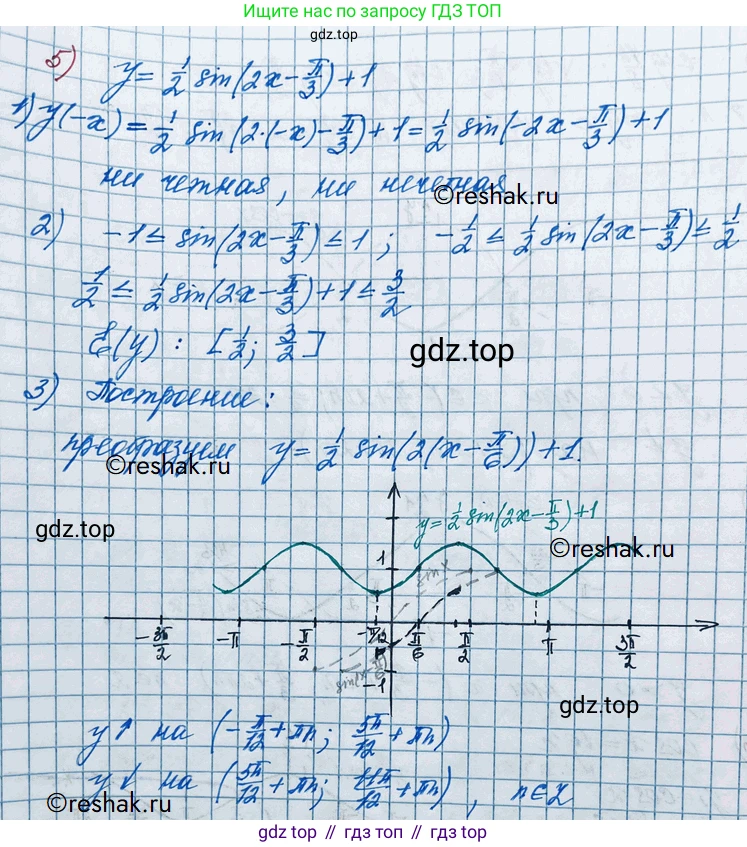 Ищите нас по запросу ГДЗ ТОП
gdz.top
5) y = 1/2 sin(2x - π/3) + 1
1) y(-x) = 1/2 sin(2·(-x) - π/3) + 1 = 1/2 sin(-2x - π/3) + 1
ни четная, ни нечетная
©reshak.ru
2) -1 ≤ sin(2x - π/3) ≤ 1 ; -1/2 ≤ 1/2 sin(2x - π/3) ≤ 1/2
1/2 ≤ 1/2 sin(2x - π/3) + 1 ≤ 3/2
E(y) : [1/2; 3/2]
gdz.top
3) Построение:
преобразуем y = 1/2 sin(2(x - π/6)) + 1.
©reshak.ru
gdz.top
y = 1/2 sin(2x - π/3) + 1
©reshak.ru
1
sin x
-3π/2 -π -π/2 -π/12 π/6 π/2 π 3π/2
-1
gdz.top
y↑ на (-π/12 + πn; 5π/12 + πn)
y↓ на (5π/12 + πn; 11π/12 + πn), n∈Z
©reshak.ru
©reshak.ru
gdz.top // гдз топ // гдз.топ // gdz top